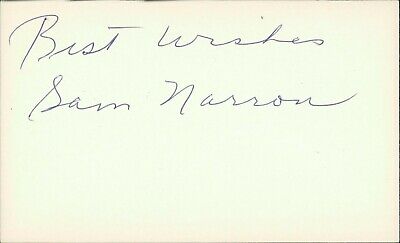 Best Wishes
Sam Narron